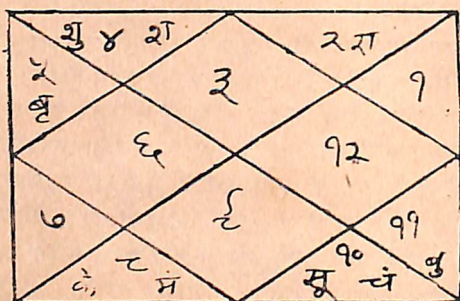 शु ४ श
२ रा
५
बृ
३
१
६
१२
७
९
११
बु
के ८ मं
सू १० चं